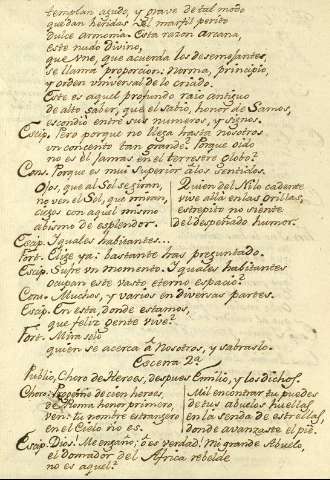 templan agudo, y grave de tal modo
que dan heridas del marfil perito
dulce armonia. Esta razon arcana,
este nudo divino,
que vne, que acuerda los desemejantes,
se llama proporcion: norma, principio,
y orden vniversal de lo criado.
Este es aquel profundo raio antiguo
de alto saber, que el sabio, honor de Samos,
escondió entre sus numeros, y signos.
Escip. Pero porque no llega hasta nosotros
vn concento tan grande? Porque oido
no es de jamas en el terrestre globo?
Cons. Porque es mui superior á los sentidos.
Ojos, que al Sol se giran,
no ven el Sol, que miran,
ciegos con aquel mismo
abismo de esplendor.
Quien del Nilo cadente
vive allá en las orillas,
estrepito no siente
del despeñado humor.
Escip. Iguales habitantes...
Fort. Elige ya: bastante has preguntado.
Escip. Sufre vn momento. Iguales habitantes
ocupan este vasto eterno espacio?
Cons. Muchos, y varios en diversas partes.
Escip. En esta, donde estamos,
que feliz gente vive?
Fort. Mira solo
quien se acerca á Nosotros, y sabraslo.
Escena 2ª
Publio, Choro de Heroes, despues Emilio, y los dichos.
Choro. de cien heroes,
de Roma honor primero,
ven: tu nombre estrangero
en el Cielo no es.
Mil encontrar tu puedes
de tus abuelos huellas
en la senda de estrellas,
donde avanzaste el pié.
Escip. Dios! Me engaño; ó es verdad! Mi grande Abuelo,
el domador del Africa rebelde
no es aquel?